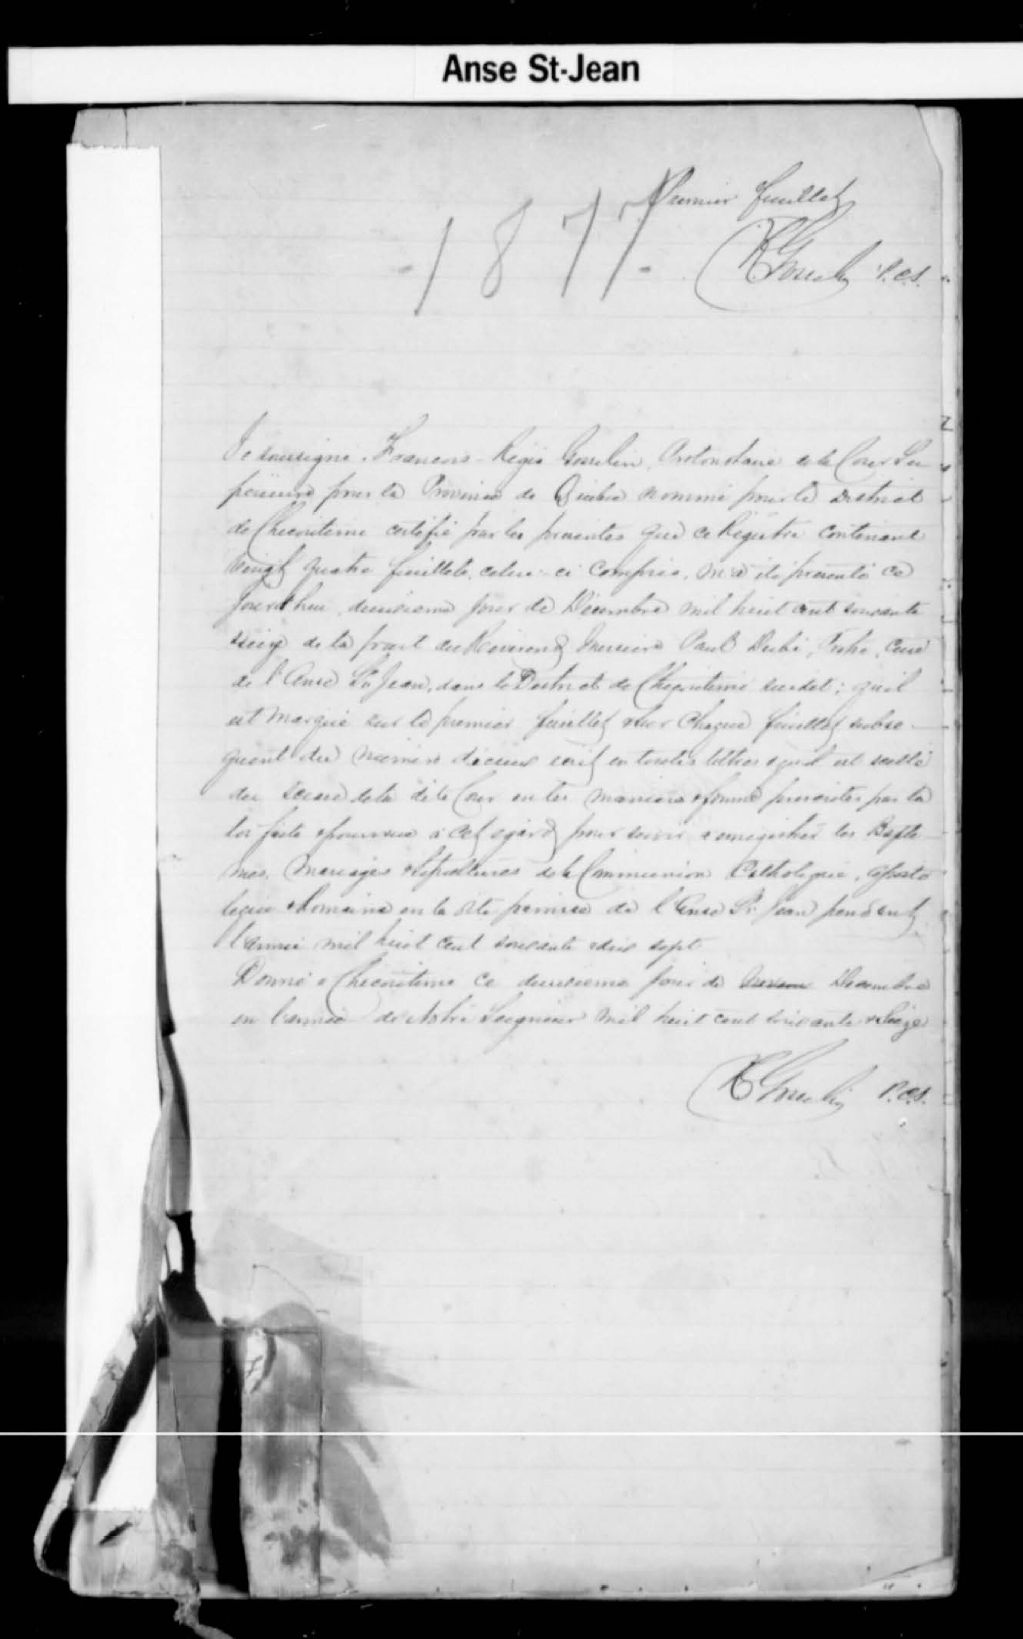 Anse St-Jean
Premier feuillet
- 1877 -
FR Gosselin P.C.S.
Je soussigné, François-Régis Gosselin, Protonotaire de la Cour Su
périeure pour la Province de Québec nommé pour le District
de Chicoutimi certifie par les présentes que ce Régistre contenant
vingt quatre feuillets, celui-ci compris, m'a été présenté ce
jourd'hui, deuxième jour de Décembre mil huit cent soixante
seize de la part du Révérend Messire Paul Dubé, Ptre, Curé
de l'Anse St Jean, dans le District de Chicoutimi susdit; qu'il
est marqué sur le premier feuillet & sur chaque feuillet subsé-
quent du numéro d'iceux écrit en toutes lettres & qu'il est scellé
du sceau de la dite Cour en la manière & forme prescrites par la
loi faite & pourvue à cet égard pour servir à enrégistrer les Baptê
mes, Mariages & Sépultures de la Communion Catholique, Aposto
lique & Romaine en la dite paroisse de l'Anse St Jean pendant
l'année mil huit cent soixante & dix sept.
Donné à Chicoutimi ce deuxième jour de Décembre
en l'année de Notre Seigneur mil huit cent soixante & Seize
FR Gosselin P.C.S.